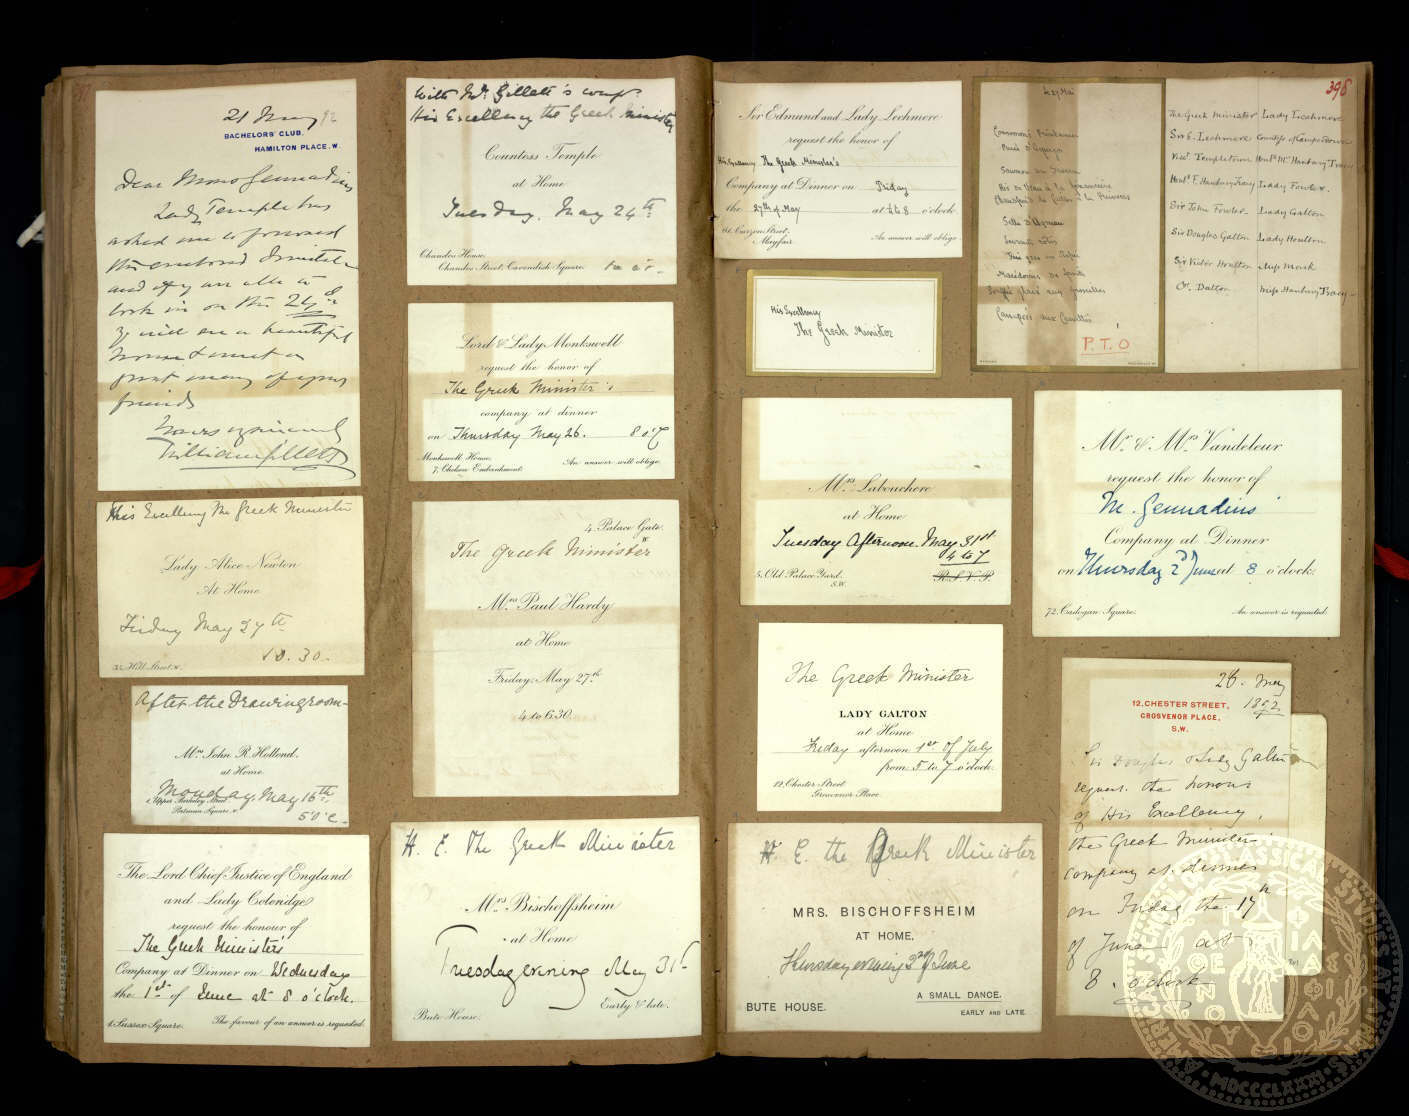 21 May 92
BACHELORS' CLUB.
HAMILTON PLACE. W.
Dear Mons Gennadius
Lady Temple has
asked me to forward
the enclosed Invitation
and if you are able to
look in on the 24th
you will see a beautiful
house & meet a
great many of your
friends
Yours sincerely
William Gillett
His Excellency the Greek Minister
Lady Alice Newton
At Home
Friday May 27th
10.30.
Hill Street. W.
After the Drawingroom
Mrs John R. Hollond.
at Home
Monday May 16th
1, Upper Berkeley Street
Portman Square. W.
5 o'c.
The Lord Chief Justice of England
and Lady Coleridge
request the honour of
The Greek Ministers
Company at Dinner on Wednesday
the 1st of June at 8 o'clock.
1. Sussex Square. The favour of an answer is requested.
With Mr Gillett's comps.
His Excellency the Greek Minister
Countess Temple
at Home
Tuesday, May 24th
Chandos House.
Chandos Street, Cavendish Square.
Lord & Lady Monkswell
request the honor of
The Greek Minister's
company at dinner
on Thursday May 26. 8 o'c
Monkswell House.
7, Chelsea Embankment. An answer will oblige.
4. Palace Gate.
The Greek Minister
Mrs Paul Hardy
at Home
Friday, May 27th
4 to 6.30.
H. E. The Greek Minister
Mrs Bischoffsheim
at Home
Tuesday evening May 31st
Early & late.
Bute House.
398
Sir Edmund and Lady Lechmere
request the honor of
His Excellency The Greek Minister's
Company at Dinner on Friday
the 27th of May at 8 o'clock.
Curzon Street.
Mayfair. An answer will oblige.
His Excellency
The Greek Minister
le 27 Mai
Consommé Printanier
Saumon
Selle d'Agneau
Macédoine de fruits
P.T.O
The Greek Minister Lady Lechmere
Sir E. Lechmere Countess of Camperdown
Visct Templetown Honble Mrs Hanbury Tracy
Honble F. Hanbury Tracy Lady Fowler.
Sir John Fowler Lady Galton
Sir Douglas Galton Lady Houlton
Sir Victor Houlton Miss Monk
Dalton Miss Hanbury Tracy
Mrs Labouchere
at Home
Tuesday Afternoon. May 31st
4 to 7
5, Old Palace Yard.
S.W.
R.S.V.P.
Mr & Mrs Vandeleur
request the honor of
M. Gennadius'
Company at Dinner
on Thursday 2d June at 8 o'clock.
72. Cadogan Square. An answer is requested.
The Greek Minister
LADY GALTON
at Home
Friday afternoon 1st of July
from 5 to 7 o'clock.
12, Chester Street
Grosvenor Place
H. E. the Greek Minister
MRS. BISCHOFFSHEIM
AT HOME.
Thursday evening 2nd of June
A SMALL DANCE.
BUTE HOUSE.
EARLY AND LATE.
26. May
1892
12, CHESTER STREET,
GROSVENOR PLACE,
S.W.
Sir Douglas & Lady Galton
request the honour
of His Excellency,
the Greek Minister
company at dinner
on Friday the 17th
of June at
8. o'clock
AMERICAN SCHOOL OF CLASSICAL STUDIES AT ATHENS
MDCCCLXXXI